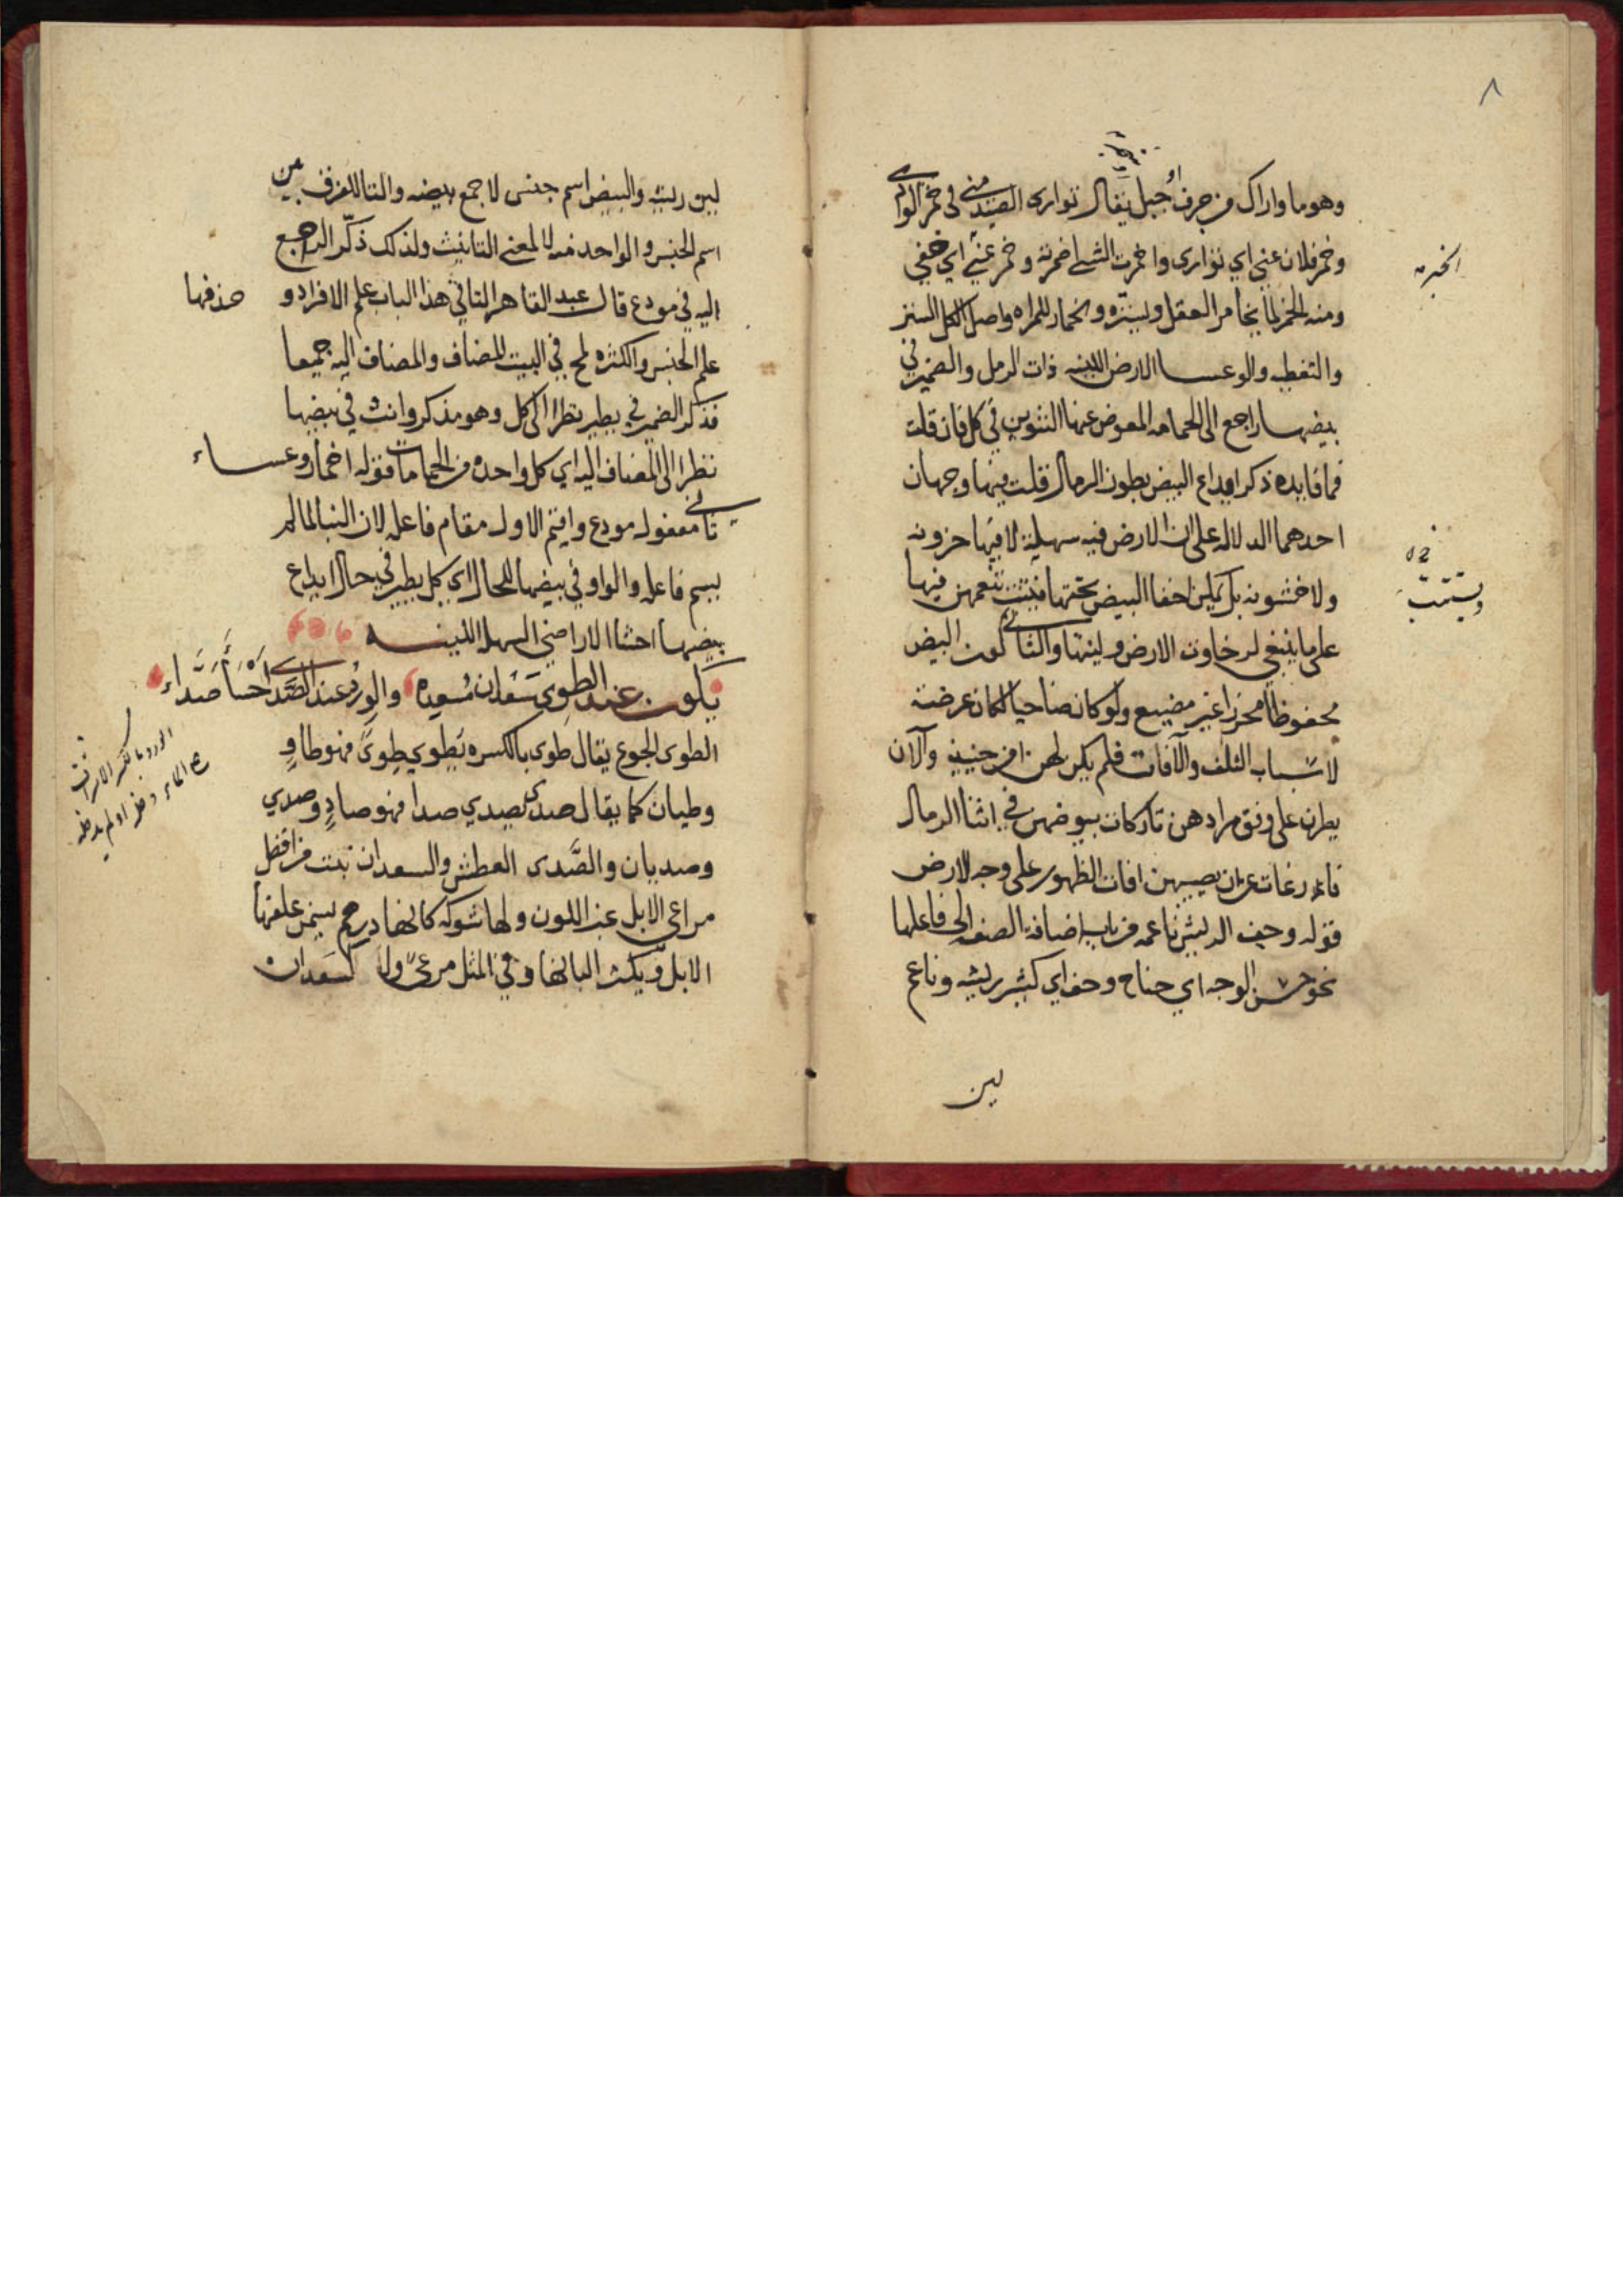 ٨
وهو ما واراك من جرف او جبل يقال توارى الصيد مني في خمر الوادي
وخمر فلان عني اي توارى واخمرت الشي اضمرته وخمر عني اي خفي
ومنه الخمر لما يخامر العقل ويستره والخمار للمراه واصل الكل الستر
والتغطيه والوعسا الارض اللينه ذات الرمل والضمير في
بيضها راجع الى الحمامه المعوض عنها التنوين في كل فان قلت
فما فايده ذكر ايداع البيض بطون الرمال قلت فيها وجهان
احدهما الدلاله على ان الارض فيه سهلية لا فيها حزونه
ولا خشونه بل يمكن اخفا البيض تحتها فيثبت تنعمهن فيها
على ما ينبغي لرخاوت الارض ولينها والثاني كون البيض
محفوظا محرزا غير مضيع ولو كان ضاحيا لكان عرضة
لاسباب التلف والآفات فلم يكن لهن افرخ حينيذ والآن
يطرن على وفق مرادهن تاركات بيوضهن في اثنا الرمال
فارغات عن ان يصيبهن افات الظهور على وجه الارض
قوله وحف الريش ناعمه من باب اضافة الصفه الى فاعلها
نحو حسن الوجه اي جناح وحف اي كثير ريشه وناعم
لين
لين ريشه والبيض اسم جنس لا جمع بيضه والتا للفرق بين
اسم الجنس والواحد منه لا لمعنى التانيث ولذلك ذكّر الراجع
اليه في مودع قال عبد القاهر التا في هذا الباب علم الافراد و حذفها
علم الجنس والكثره لمح في البيت المضاف والمضاف اليه جميعا
فذكر الضمير في يطير نظرا الى كل وهو مذكر وانث في بيضها
نظرا الى المضاف اليه اي كل واحده من الحمامات فقوله اخمار وعساء
ثاني مفعولي مودع واقيم الاول مقام فاعله لان البنا لما لم
يسم فاعله والواو في بيضها للحال اي كل يطير في حال ايداع
بيضها احشا الاراضي السهله اللينه
يكون عند الطوى سعدان مسعده والورد عند الصدى احساء صداء
الطوى الجوع يقال طوي بالكسره يطوي طوى فهو طاوٍ
وطيان كما يقال صدي يصدي صدا فهو صادٍ وصدي
وصديان والصَّدى العطش والسعدان نبت من افضل
مراعي الابل غبر اللون ولها شوكه كانها درهم يسمن علفها
الابل ويكثر البانها وفي المثل مرعى ولا كسعدان